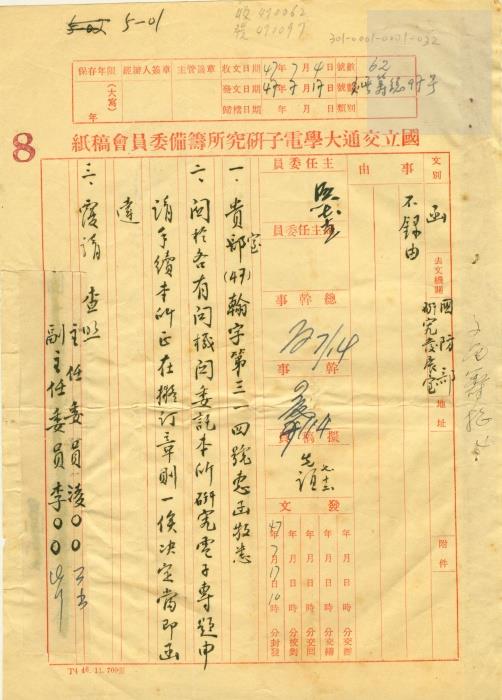 5-02 5-01
收 470062
發 471097
301-0001-0001-032
保存年限 （大寫） 年
經辦人簽章
主管簽章
收文日期 47年7月4日
發文日期 47年7月17日
歸檔日期 年 月 日
號數 62
號數
類別
8
國立交通大學電子研究所籌備委員會稿紙
文別 函
去文機關 國防部研究發展室
地址
附件
事由 不錄由
主任委員
副主任委員
總幹事 7/14
幹事 7/14
擬稿員
發文
47年7月17日10時 分封發
年 月 日 時 分校對
年 月 日 時 分交回
年 月 日 時 分交繕
年 月 日 時 分交辦
一、貴部室(47)翰字第三一一四號惠函敬悉
二、關於各有關機關委託本所研究電子專題申
請手續本所正在擬訂章則一俟決定當即函
達
三、復請 查照
主任委員凌○○
副主任委員李○○
T4 46. 11. 700張